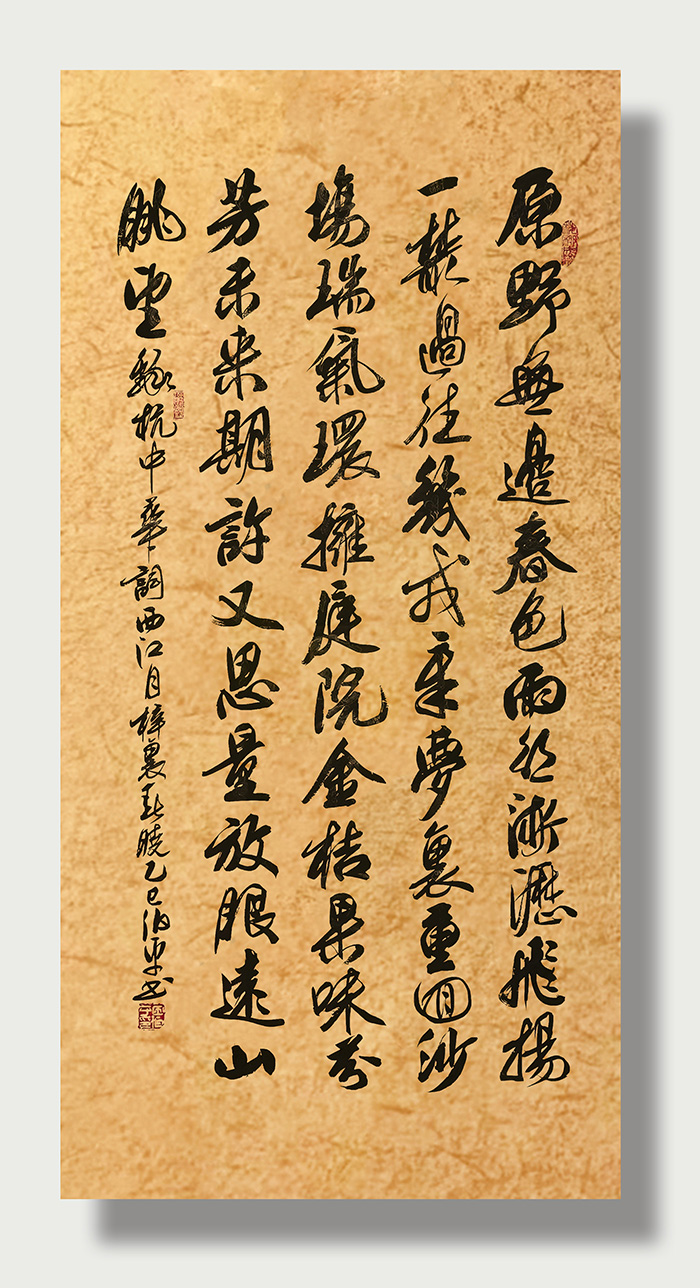 原野無邊春色雨淅瀝飛揚
一過往幾戎章夢裏重回沙
場瑞氣環擁庭院金桔果味芬
芳未來期許又思量放眼遠山
眺望 錄杭中華詞西江月梓裏春曉乙巳伯平書